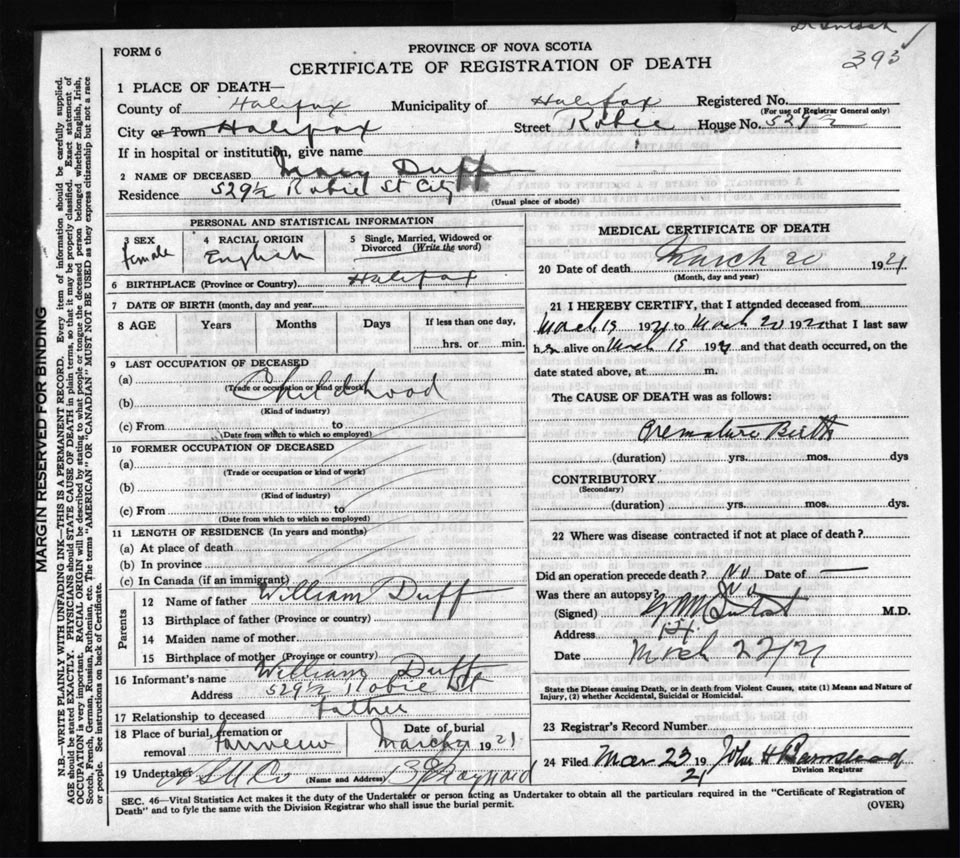 393
FORM 6
PROVINCE OF NOVA SCOTIA
CERTIFICATE OF REGISTRATION OF DEATH
1 PLACE OF DEATH—
County of Halifax Municipality of Halifax Registered No.
(For use of Registrar General only)
City or Town Halifax Street Robie House No. 529½
If in hospital or institution, give name
2 NAME OF DECEASED Mary Duff
Residence 529½ Robie St City
(Usual place of abode)
PERSONAL AND STATISTICAL INFORMATION
3 SEX female
4 RACIAL ORIGIN English
5 Single, Married, Widowed or Divorced (Write the word)
6 BIRTHPLACE (Province or Country) Halifax
7 DATE OF BIRTH (month, day and year)
8 AGE Years Months Days If less than one day, hrs. or min.
9 LAST OCCUPATION OF DECEASED
(a) Childhood
(Trade or occupation or kind of work)
(b)
(Kind of industry)
(c) From to
(Date from which to which so employed)
10 FORMER OCCUPATION OF DECEASED
(a)
(Trade or occupation or kind of work)
(b)
(Kind of industry)
(c) From to
(Date from which to which so employed)
11 LENGTH OF RESIDENCE (In years and months)
(a) At place of death
(b) In province
(c) In Canada (if an immigrant)
Parents
12 Name of father William Duff
13 Birthplace of father (Province or country)
14 Maiden name of mother
15 Birthplace of mother (Province or country)
16 Informant's name William Duff
Address 529½ Robie St
17 Relationship to deceased Father
18 Place of burial, cremation or removal Fairview
Date of burial March 21 1921
19 Undertaker (Name and Address)
MEDICAL CERTIFICATE OF DEATH
20 Date of death March 20 1921
(Month, day and year)
21 I HEREBY CERTIFY, that I attended deceased from
March 1921 to March 20 192 that I last saw
her alive on March 192 and that death occurred, on the
date stated above, at m.
The CAUSE OF DEATH was as follows:
Premature Birth
(duration) yrs. mos. dys
CONTRIBUTORY
(Secondary)
(duration) yrs. mos. dys.
22 Where was disease contracted if not at place of death?
Did an operation precede death? No Date of —
Was there an autopsy? No
(Signed) M.D.
Address
Date March 22/21
State the Disease causing Death, or in death from Violent Causes, state (1) Means and Nature of Injury, (2) whether Accidental, Suicidal or Homicidal.
23 Registrar's Record Number
24 Filed Mar 23 1921 John H
Division Registrar
SEC. 46—Vital Statistics Act makes it the duty of the Undertaker or person acting as Undertaker to obtain all the particulars required in the "Certificate of Registration of
Death" and to fyle the same with the Division Registrar who shall issue the burial permit.
(OVER)
MARGIN RESERVED FOR BINDING
N.B.—WRITE PLAINLY WITH UNFADING INK—THIS IS A PERMANENT RECORD. Every item of information should be carefully supplied.
AGE should be stated EXACTLY. PHYSICIANS should STATE CAUSE OF DEATH in plain terms, so that it may be properly classified. Exact statement of
OCCUPATION is very important. RACIAL ORIGIN will be described by stating to what people or tongue the deceased person belonged whether English, Irish,
Scotch, French, German, Russian, Ruthenian, etc. The terms "AMERICAN" OR "CANADIAN" MUST NOT BE USED as they express citizenship but not a race
or people. See instructions on back of Certificate.